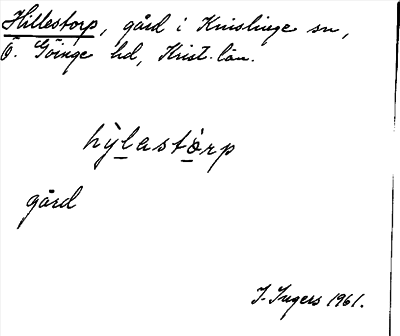 Hillestorp, gård i Knislinge sn,
Ö. Göinge hd, Krist. län.
hỳlastòrp
gård
I. Ingers 1961.